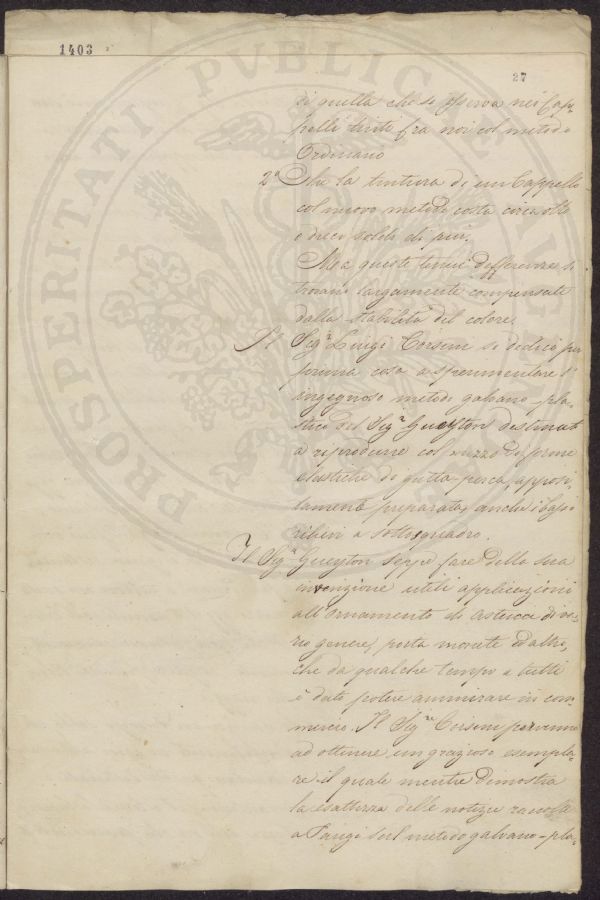 1403
27
di quella che si osserva nei Cap-
pelli tinti fra noi col metodo
Ordinario
2ª Che la tintura di un Cappello
col nuovo metodo costa circa otto
o dieci soldi di più.
Ma queste tenui differenze si
trovano largamente compensate
dalla stabilità del colore.
Il Sigr. Luigi Corsini si dedicò per
prima cosa a sperimentare l'
ingegnoso metodo galvano-pla-
stico del Sigr. Gueyton destinato
a riprodurre col mezzo di forme
elastiche di gutta-perca, apposi-
tamente preparata, anche i bassi
rilievi a sottosquadro.
Il Sigr. Gueyton seppe fare della sua
invenzione utili applicazioni
all'ornamento di astucci di va-
rio genere, porta monete ed altri,
che da qualche tempo a tutti
è dato potere ammirare in com-
mercio. Il Sigre. Corsini pervenne
ad ottenere un grazioso esempla-
re il quale mentre dimostra
la esattezza delle notizie raccolte
a Parigi sul metodo galvano-pla-
PROSPERITATI PUBLICAE AUGENDAE